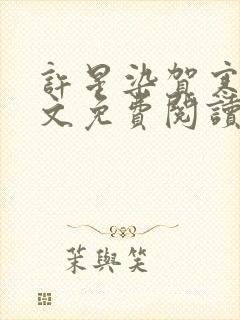 許星染賀寒
文免費閱讀
茉與笑